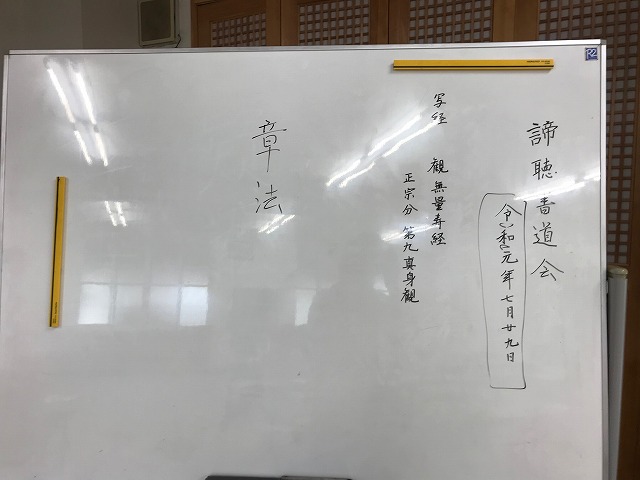 諦聴書道会
令和元年七月廿九日
写経 観無量寿経
正宗分 第九真身観
章法